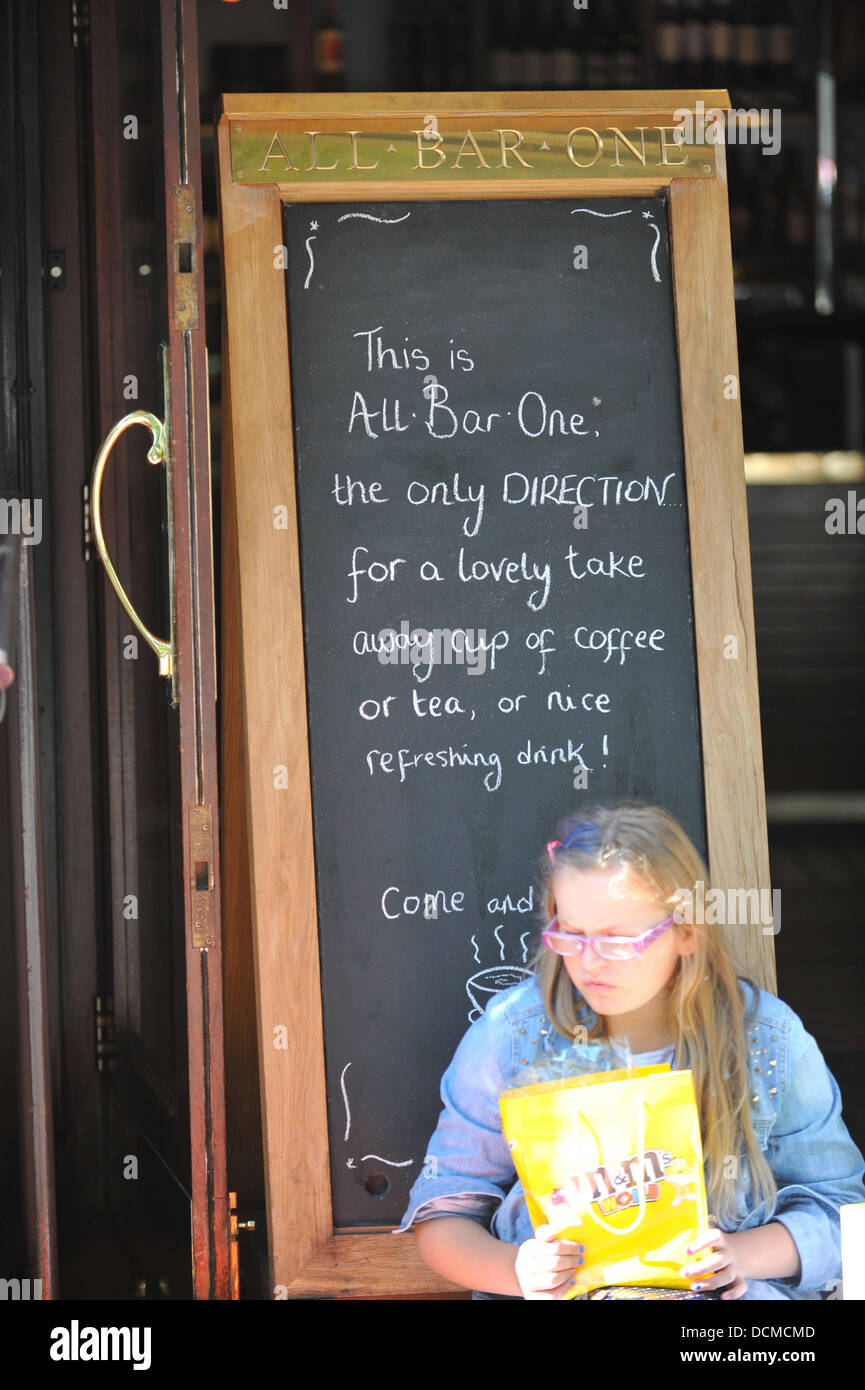 ALL · BAR · ONE
This is
All·Bar·One,
the only DIRECTION...
for a lovely take
away cup of coffee
or tea, or nice
refreshing drink!
Come and
m&m's
WORLD
alamy
Image ID: DCMCMD
www.alamy.com